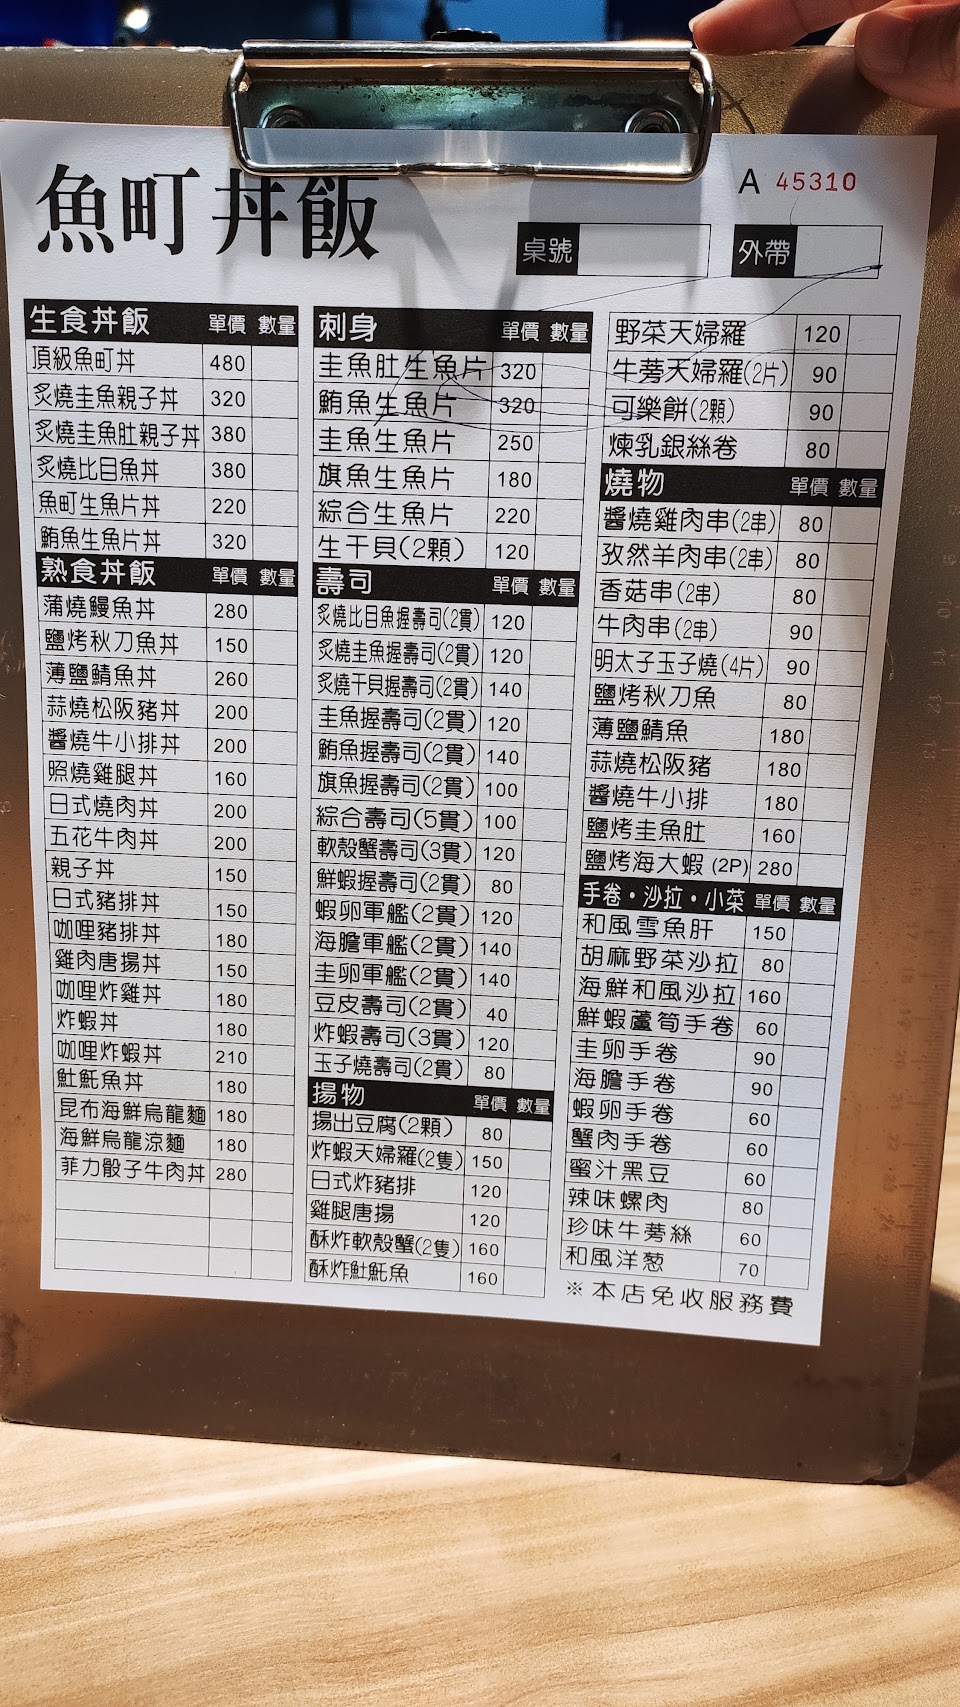 魚町丼飯
A 45310
桌號
外帶
生食丼飯 單價 數量
頂級魚町丼 480
炙燒圭魚親子丼 320
炙燒圭魚肚親子丼 380
炙燒比目魚丼 380
魚町生魚片丼 220
鮪魚生魚片丼 320
熟食丼飯 單價 數量
蒲燒鰻魚丼 280
鹽烤秋刀魚丼 150
薄鹽鯖魚丼 260
蒜燒松阪豬丼 200
醬燒牛小排丼 200
照燒雞腿丼 160
日式燒肉丼 200
五花牛肉丼 200
親子丼 150
日式豬排丼 150
咖哩豬排丼 180
雞肉唐揚丼 150
咖哩炸雞丼 180
炸蝦丼 180
咖哩炸蝦丼 210
魠魠魚丼 180
昆布海鮮烏龍麵 180
海鮮烏龍涼麵 180
菲力骰子牛肉丼 280
刺身 單價 數量
圭魚肚生魚片 320
鮪魚生魚片 320
圭魚生魚片 250
旗魚生魚片 180
綜合生魚片 220
生干貝(2顆) 120
壽司 單價 數量
炙燒比目魚握壽司(2貫) 120
炙燒圭魚握壽司(2貫) 120
炙燒干貝握壽司(2貫) 140
圭魚握壽司(2貫) 120
鮪魚握壽司(2貫) 140
旗魚握壽司(2貫) 100
綜合壽司(5貫) 100
軟殼蟹壽司(3貫) 120
鮮蝦握壽司(2貫) 80
蝦卵軍艦(2貫) 120
海膽軍艦(2貫) 140
圭卵軍艦(2貫) 140
豆皮壽司(2貫) 40
炸蝦壽司(3貫) 120
玉子燒壽司(2貫) 80
揚物 單價 數量
揚出豆腐(2顆) 80
炸蝦天婦羅(2隻) 150
日式炸豬排 120
雞腿唐揚 120
酥炸軟殼蟹(2隻) 160
酥炸魠魠魚 160
野菜天婦羅 120
牛蒡天婦羅(2片) 90
可樂餅(2顆) 90
煉乳銀絲卷 80
燒物 單價 數量
醬燒雞肉串(2串) 80
孜然羊肉串(2串) 80
香菇串(2串) 80
牛肉串(2串) 90
明太子玉子燒(4片) 90
鹽烤秋刀魚 80
薄鹽鯖魚 180
蒜燒松阪豬 180
醬燒牛小排 180
鹽烤圭魚肚 160
鹽烤海大蝦 (2P) 280
手卷・沙拉・小菜 單價 數量
和風雪魚肝 150
胡麻野菜沙拉 80
海鮮和風沙拉 160
鮮蝦蘆筍手卷 60
圭卵手卷 90
海膽手卷 90
蝦卵手卷 60
蟹肉手卷 60
蜜汁黑豆 60
辣味螺肉 80
珍味牛蒡絲 60
和風洋葱 70
※本店免收服務費